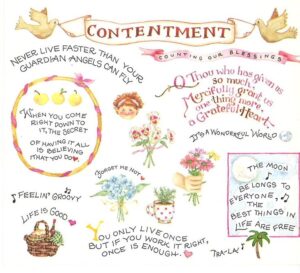 CONTENTMENT
COUNTING OUR BLESSINGS
NEVER LIVE FASTER THAN YOUR
GUARDIAN ANGELS CAN FLY.
O Thou who has given us
so much,
Mercifully grant us
one thing more,
a Grateful Heart.
WHEN YOU COME
RIGHT DOWN TO
IT, THE SECRET
OF HAVING IT ALL
IS BELIEVING
THAT YOU DO
IT'S A WONDERFUL WORLD
FORGET ME NOT
THE MOON
BELONGS TO
EVERYONE,
THE
BEST THINGS IN
LIFE ARE FREE
FEELIN' GROOVY
LIFE IS GOOD
YOU ONLY LIVE ONCE
BUT IF YOU WORK IT RIGHT,
ONCE IS ENOUGH.
TRA-LA